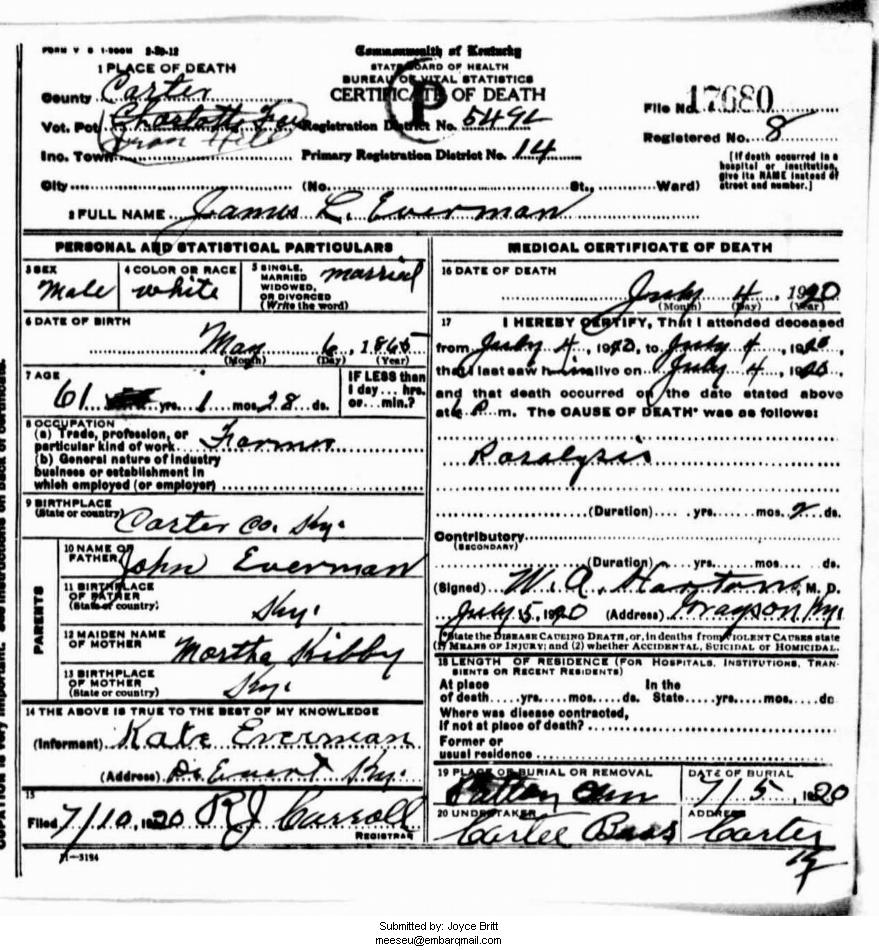 FORM V S 1-500M 2-20-12
Commonwealth of Kentucky
STATE BOARD OF HEALTH
BUREAU OF VITAL STATISTICS
CERTIFICATE OF DEATH
P
1 PLACE OF DEATH
County Carter
Vot. Pct. Charlotte Fur
Iron Hill
Inc. Town
City (No. St., Ward)
Registration District No. 5492
Primary Registration District No. 14
File No. 17680
Registered No. 8
[If death occurred in a hospital or institution, give its NAME instead of street and number.]
2 FULL NAME James L. Everman
PERSONAL AND STATISTICAL PARTICULARS
3 SEX
Male
4 COLOR OR RACE
white
5 SINGLE, MARRIED WIDOWED, OR DIVORCED (Write the word)
married
6 DATE OF BIRTH
May 6, 1865
(Month) (Day) (Year)
7 AGE
61 yrs. 1 mos. 28 ds.
IF LESS than 1 day... hrs. or... min.?
8 OCCUPATION
(a) Trade, profession, or particular kind of work Farmer
(b) General nature of industry business or establishment in which employed (or employer)
9 BIRTHPLACE
(State or country) Carter Co. Ky.
PARENTS
10 NAME OF FATHER John Everman
11 BIRTHPLACE OF FATHER (State or country) Ky.
12 MAIDEN NAME OF MOTHER Martha Kibby
13 BIRTHPLACE OF MOTHER (State or country) Ky.
14 THE ABOVE IS TRUE TO THE BEST OF MY KNOWLEDGE
(Informant) Kate Everman
(Address) Ky.
15
Filed 7/10, 1920 R J Carroll
REGISTRAR
11-3184
MEDICAL CERTIFICATE OF DEATH
16 DATE OF DEATH
July 4, 1920
(Month) (Day) (Year)
17 I HEREBY CERTIFY, That I attended deceased
from July 4, 1920, to July 4, 1920,
that I last saw h alive on July 4, 1920,
and that death occurred on the date stated above
at P. m. The CAUSE OF DEATH* was as follows:
Paralysis
(Duration) yrs. mos. 2 ds.
Contributory
(SECONDARY)
(Duration) yrs. mos. ds.
(Signed) W. A. Horton, M. D.
July 5, 1920 (Address) Grayson Ky.
*State the DISEASE CAUSING DEATH, or, in deaths from VIOLENT CAUSES state
(1) MEANS OF INJURY; and (2) whether ACCIDENTAL, SUICIDAL or HOMICIDAL.
18 LENGTH OF RESIDENCE (FOR HOSPITALS, INSTITUTIONS, TRANSIENTS OR RECENT RESIDENTS)
At place of death yrs. mos. ds. In the State yrs. mos. ds
Where was disease contracted, if not at place of death?
Former or usual residence
19 PLACE OF BURIAL OR REMOVAL
DATE OF BURIAL
7/5, 1920
20 UNDERTAKER
ADDRESS
Carter
Submitted by: Joyce Britt
meeseu@embarqmail.com